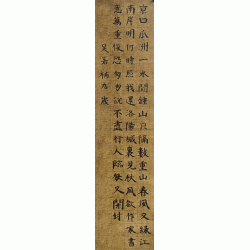 京口瓜州一水間鍾山只隔數重山春風又綠江
南岸明何時照我還洛陽城裏見秋風欲作家書
意萬重復恐匆匆說不盡行人臨發又開封
吳楠九歲